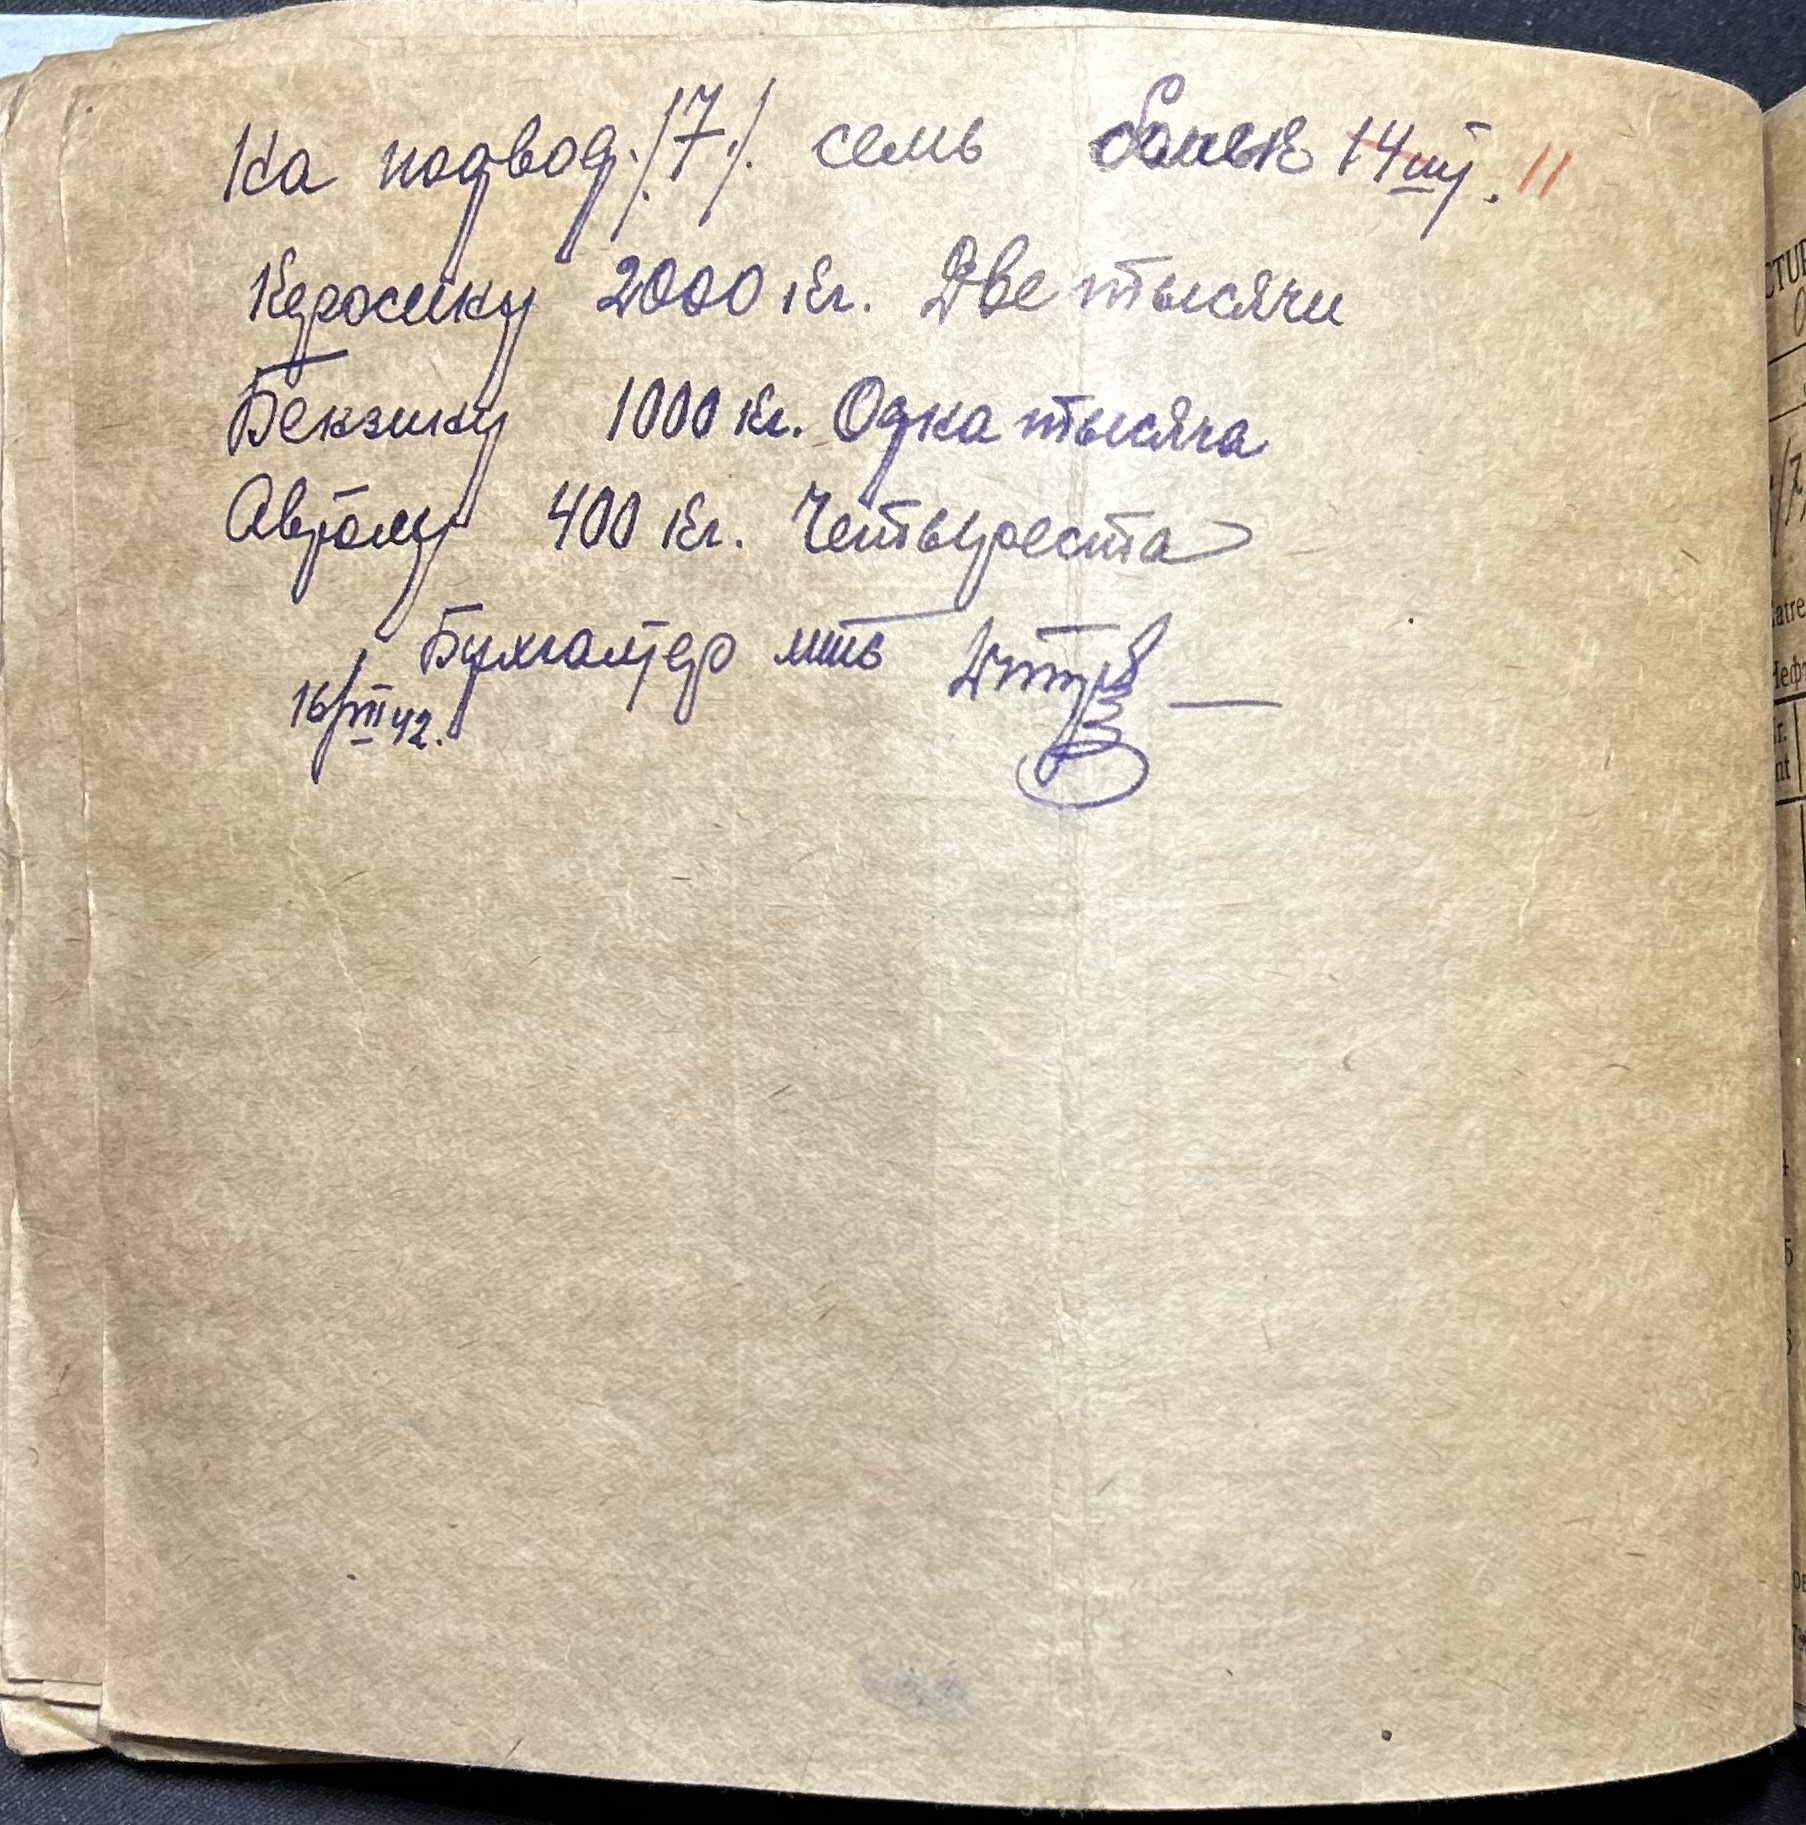 На подвод. /.7./ семь бочек 14 шт. 11
Керосину 2000 кг. Две тысячи
Бензину 1000 кг. Одна тысяча
Автолу 400 кг. Четыреста
Бухгалтер мтс
16/VII 42.